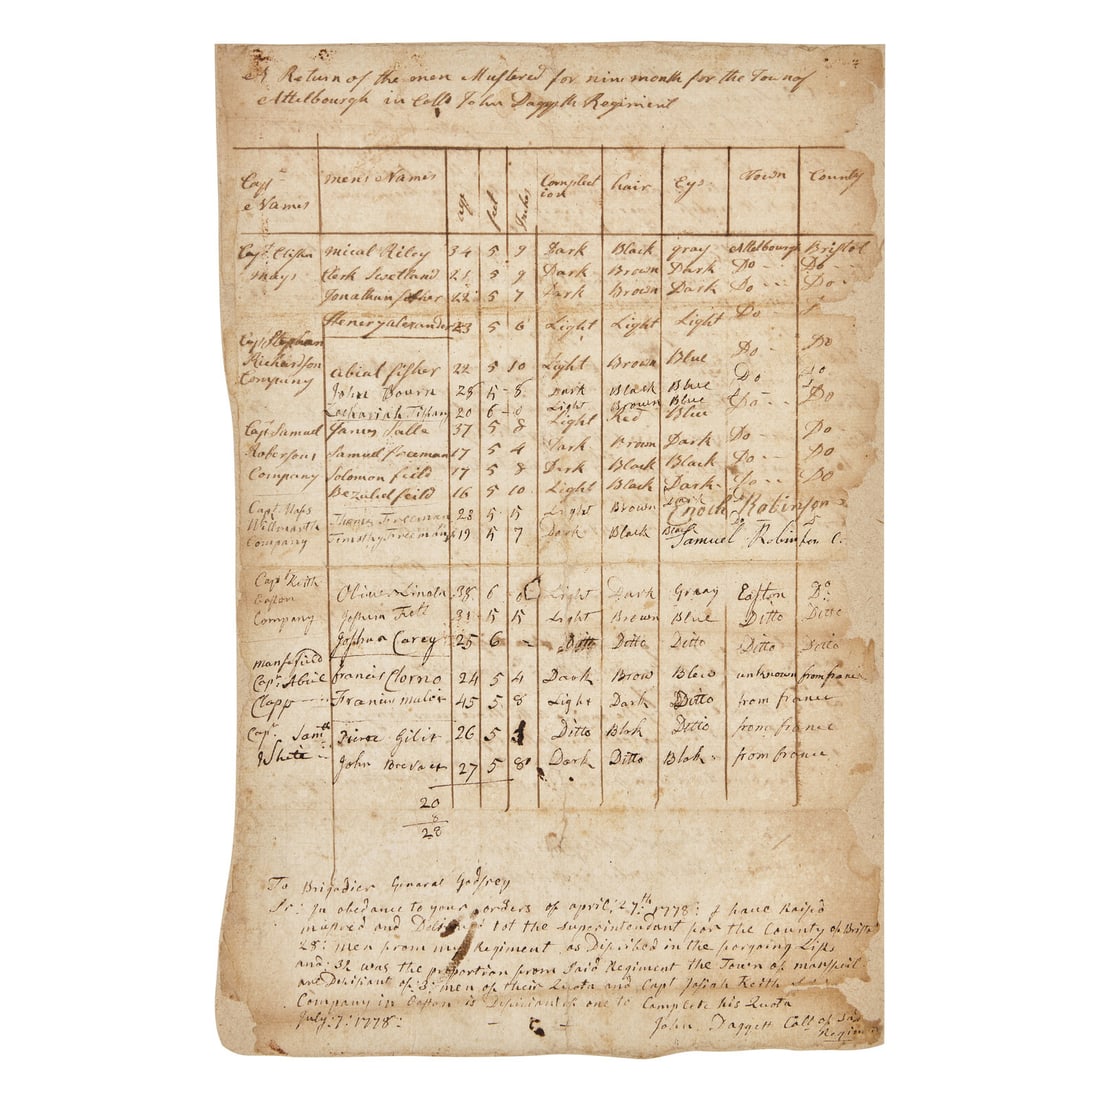 A Return of the men Mustered for nine month for the Town of
Attelbourgh in Coll John Daggetts Regiment
Capt Names mens Names age feet Inches Complection hair Eys Town County
Capt Elisha mical Riley 34 5 9 Dark Black gray Attelbourg Bristol
mays Clerk Swetland 21 5 9 Dark Brown Dark Do Do
Jonathan fisher 22 5 7 Dark Brown Dark Do Do
Henery alexander 23 5 6 Light Light Light Do
Capt Stephen
Richardson Abial fisher 22 5 10 Light Brown Blue Do Do
Company John Bourn 28 5 8 Dark Black Blue Do
Zachariah Tiffany 20 6 0 Light Brown Blue Do Do
Capt Samuel James Talle 37 5 8 Light Red Blue
Robersons Samuel freeman 17 5 4 Dark Brown Dark Do Do
Company Solomon feild 17 5 8 Dark Black Black Do Do
Bezaliel feild 16 5 10 Light Black Dark Do Do
Capt Thomas Freeman 28 5 5 Light Brown Enoch Robinson
Willmarth
Company Timothy freeman 19 5 7 Dark Black Black Samuel Robinson
Capt Keith
Easton Oliver Lincoln 38 6 0 Light Dark Gray Easton Do
Company Joshua Fell 31 5 5 Light Brown Blue Ditto Ditto
Joshua Carey 25 6 - Ditto Ditto Ditto Ditto Ditto
mansfield
Capt Abiel francis Clorno 24 5 4 Dark Brow Blew unknown from france
Clapp Francis mulor 45 5 8 Light Dark Ditto from france
Capt Samll Pierre Gilit 26 5 Ditto Blak Ditto from france
White John 27 5 8 Dark Ditto Blak from france
20
8
28
To Brigadier General Godfrey
Sr: In obedance to your orders of april: 27th: 1778: I have Raised
mustred and to the Superintendant for the County of Bristo
28: men from my Regiment as Discribed in the forgoing List
and: 32 was the proportion from Said Regiment the Town of mansfeil
are Difisiant of 3: men of their Quota and Capt Josiah Keith
Company in Easton is Difisiant of one to Complete his Quota
July: 7: 1778: John Daggett Coll of Said
Regiment